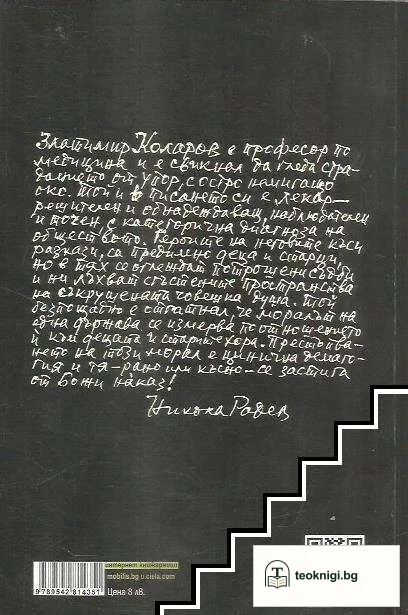 Златимир Коларов е професор по
медицина и е свикнал да гледа стра-
данието от упор, с остро немигащо
око. Той и в писането си е лекар-
решителен и обнадеждаващ, наблюдателен
и точен с категорична диагноза на
обществото. Героите на неговите къси
разкази, са предимно деца и старци,
но в тях се оглеждат потрошени съдби
и ни лъхват сгъстените пространства
на съкрушената човешка душа. Той
безпощадно е отбатнал, че моралът на
една държава се измерва по отношението
й към децата и старите хора. Престъпва-
нето на този морал е цинична демаго-
гия и тя-рано или късно-се застига
от Божи наказ!
Никола Радев
интернет книжарници
mobilis.bg и ciela.com
9789542814351
Цена 8 лв.
teoknigi.bg